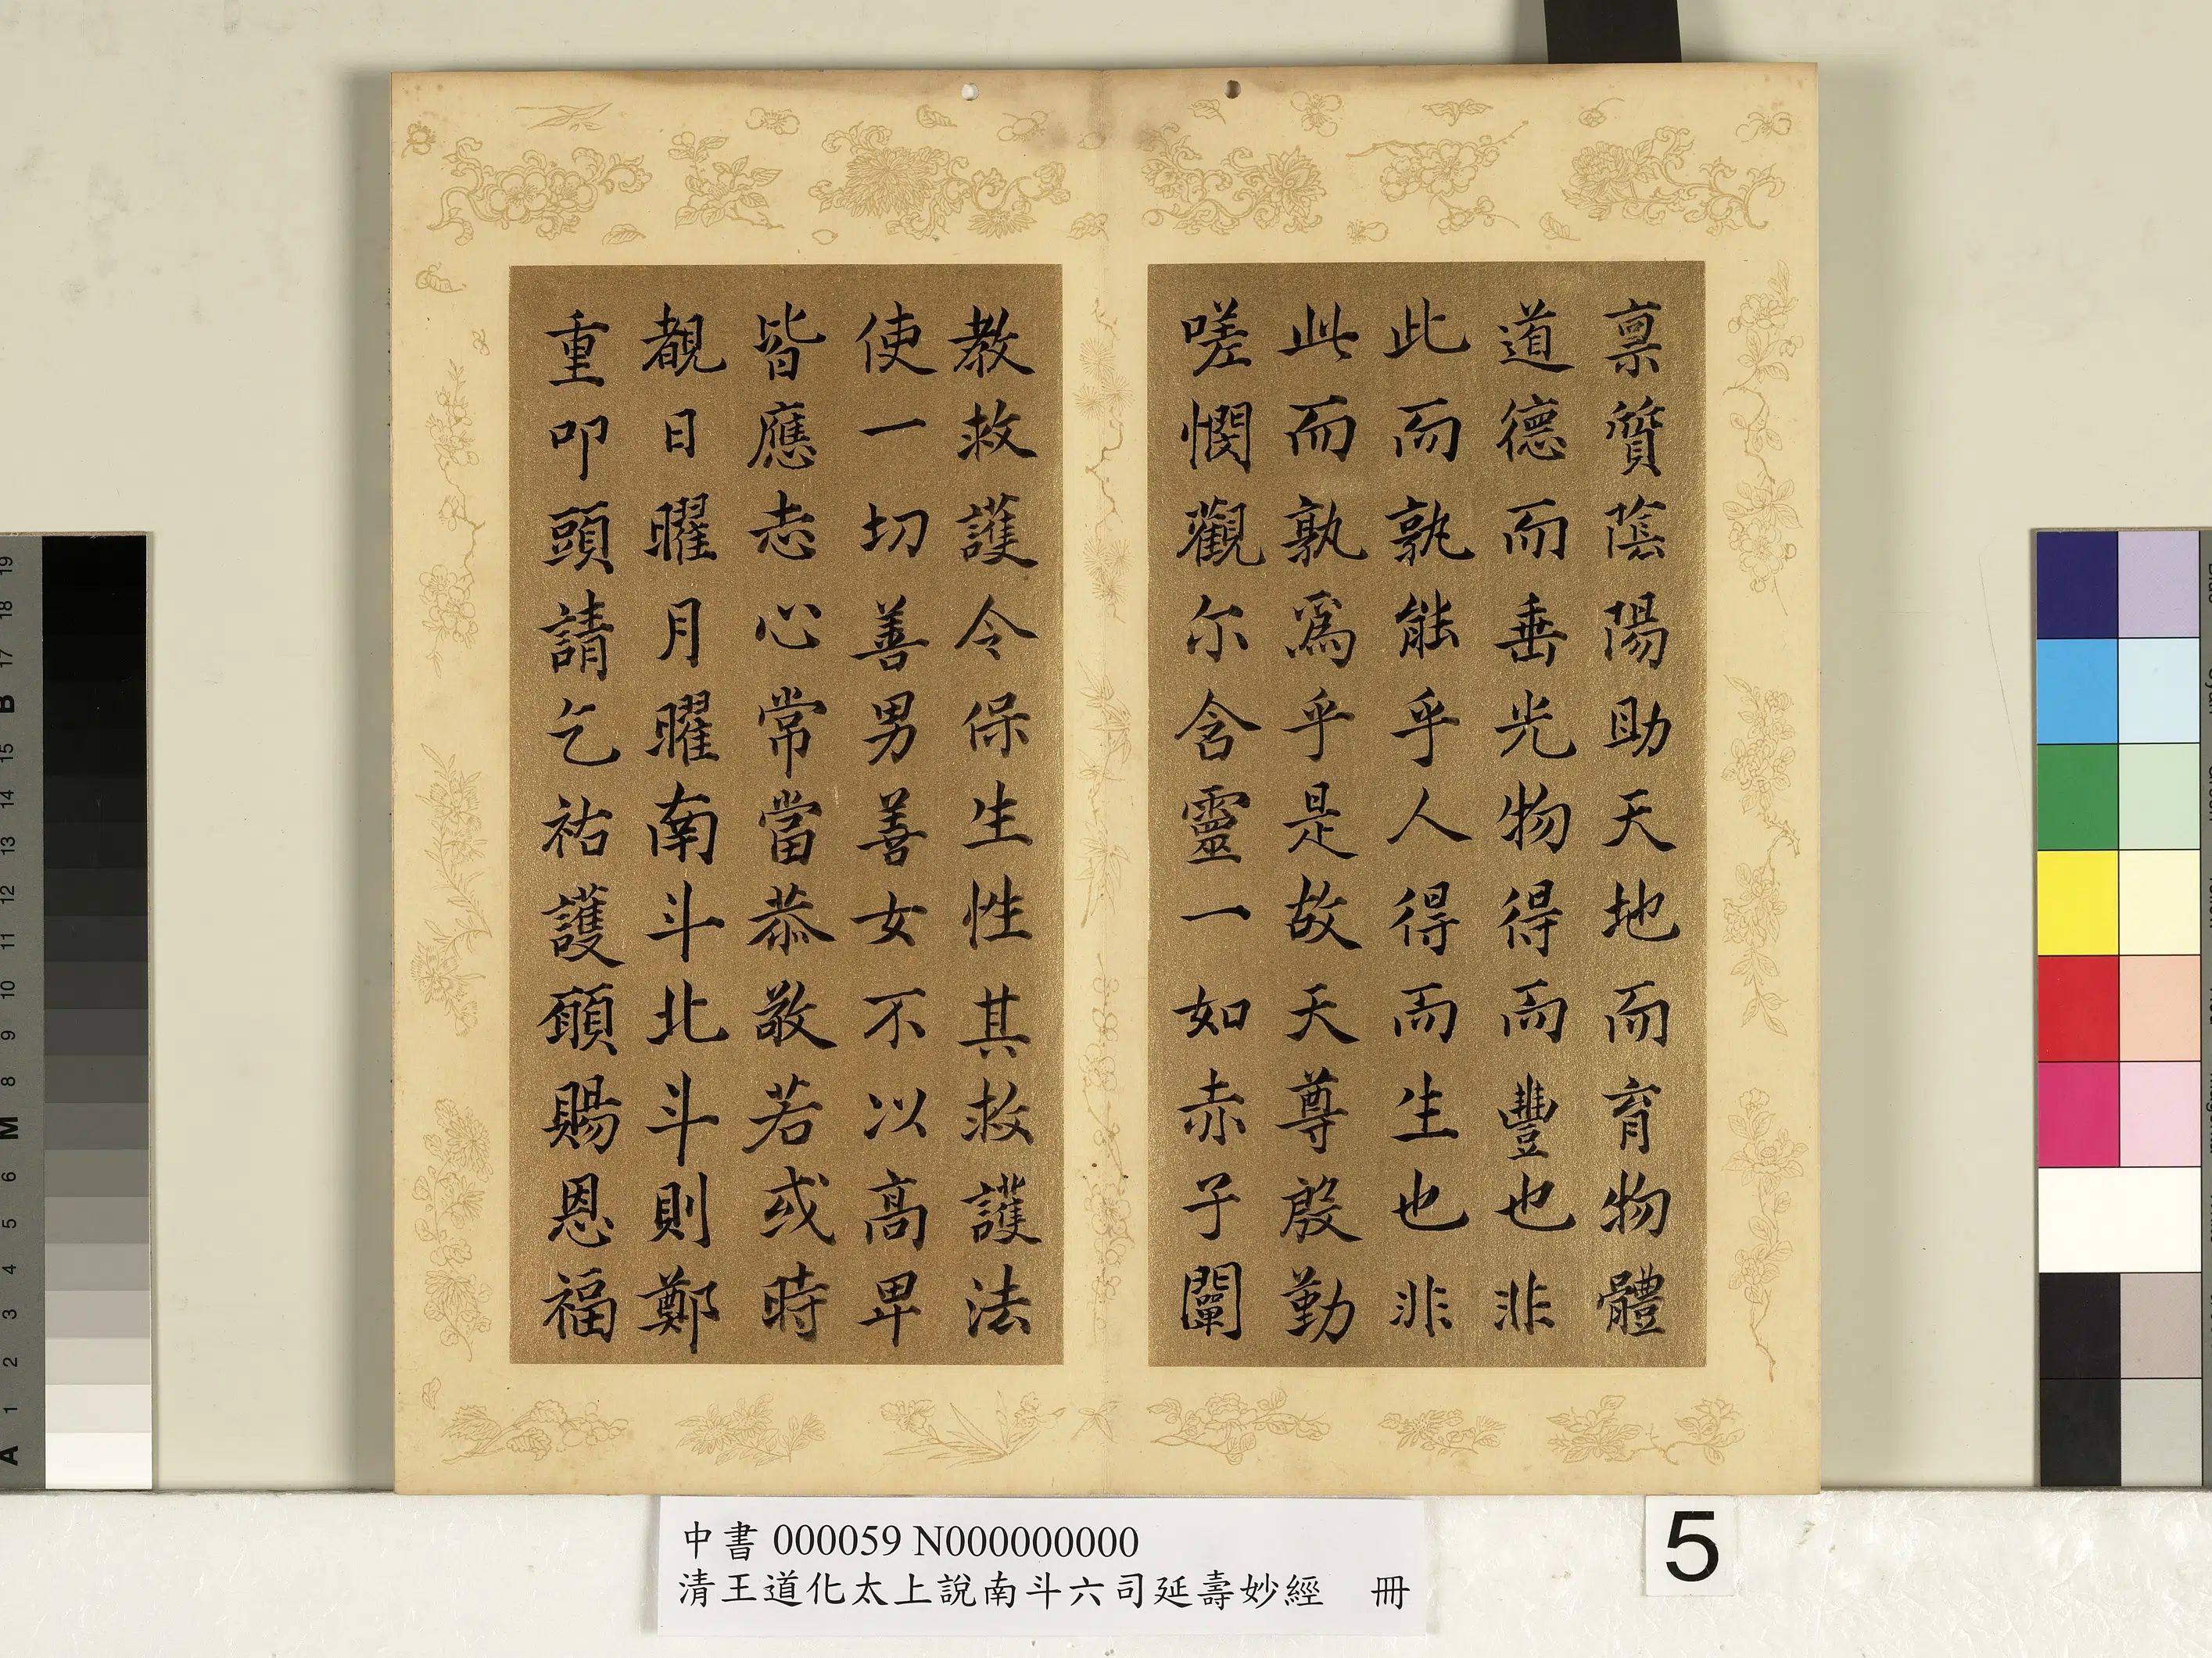 稟質蔭陽助天地而育物體
道德而垂光物得而豐也非
此而孰能乎人得而生也非
此而孰為乎是故天尊殷勤
嗟憫觀尒含靈一如赤子闡
教救護令保生性其救護法
使一切善男善女不以高卑
皆應志心常當恭敬若或時
覩日曜月曜南斗北斗則鄭
重叩頭請乞祐護願賜恩福
中書 000059 N000000000
清王道化太上說南斗六司延壽妙經 冊
5
19
18
17
B
15
14
13
12
11
10
9
8
M
6
5
4
3
2
1
A